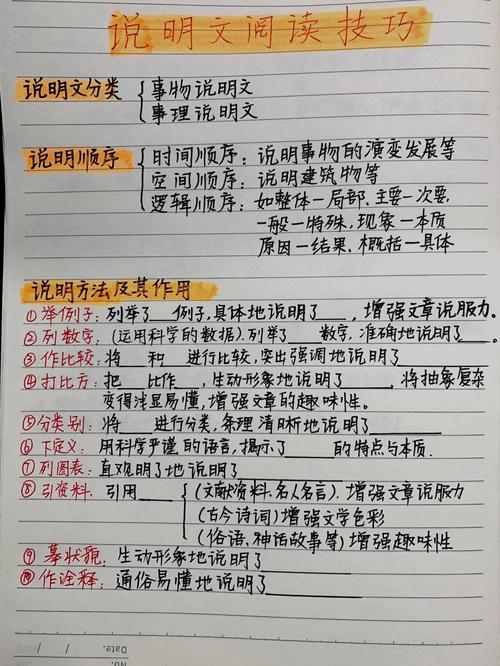 说明文阅读技巧
说明文分类 { 事物说明文
事理说明文
说明顺序 { 时间顺序：说明事物的演变发展等
空间顺序：说明建筑物等
逻辑顺序：如整体一局部、主要一次要，
一般一特殊，现象一本质
原因一结果，概括一具体
说明方法及其作用
①举例子：列举了___例子，具体地说明了___，增强文章说服力。
②列数字：(运用科学的数据).列举了___数字，准确地说明了___。
③作比较：将___和___进行比较，突出强调地说明了___
④打比方：把___比作___，生动形象地说明了___，将抽象复杂
变得浅显易懂，增强文章的趣味性。
⑤分类别：将___进行分类，条理清晰地说明了___
⑥下定义：用科学严谨的语言，揭示了___的特点与本质.
⑦列图表：直观明了地说明了___
⑧引资料：引用___ { (文献资料、名人名言)，增强文章说服力
(古今诗词)增强文学色彩
(俗语、神话故事等)增强趣味性
⑨摹状貌：生动形象地说明了___
⑩作诠释：通俗易懂地说明了___
Date. / /
No.